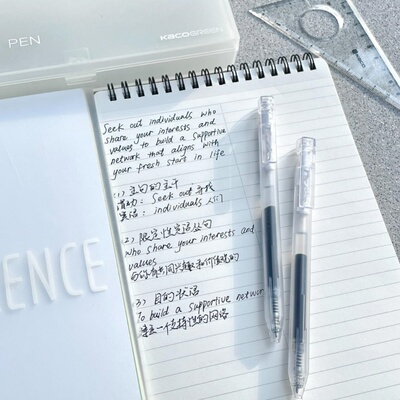 PEN
KACOGREEN
ENCE
Seek out individuals who
share your interests and
values to build a supportive
network that aligns with
your fresh start in life
(1) 主句的主干
谓动: Seek out 寻找
宾语: individuals 人们
2) 限定性定语从句
Who share your interests and
values
与你有共同兴趣和价值观的
3) 目的状语
To build a supportive network
建立一个支持性的网络